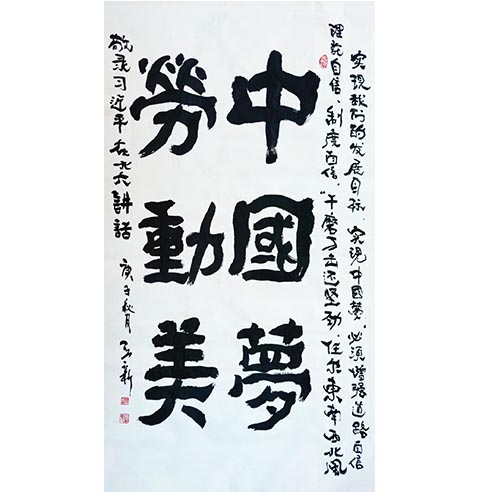 实現我们的发展目标、实現中國夢，必須增强道路自信
理论自信、制度自信，"千磨万击还坚劲，任尔東南西北風
中國夢
勞動美
敬录习近平在北大講話
庚子秋月